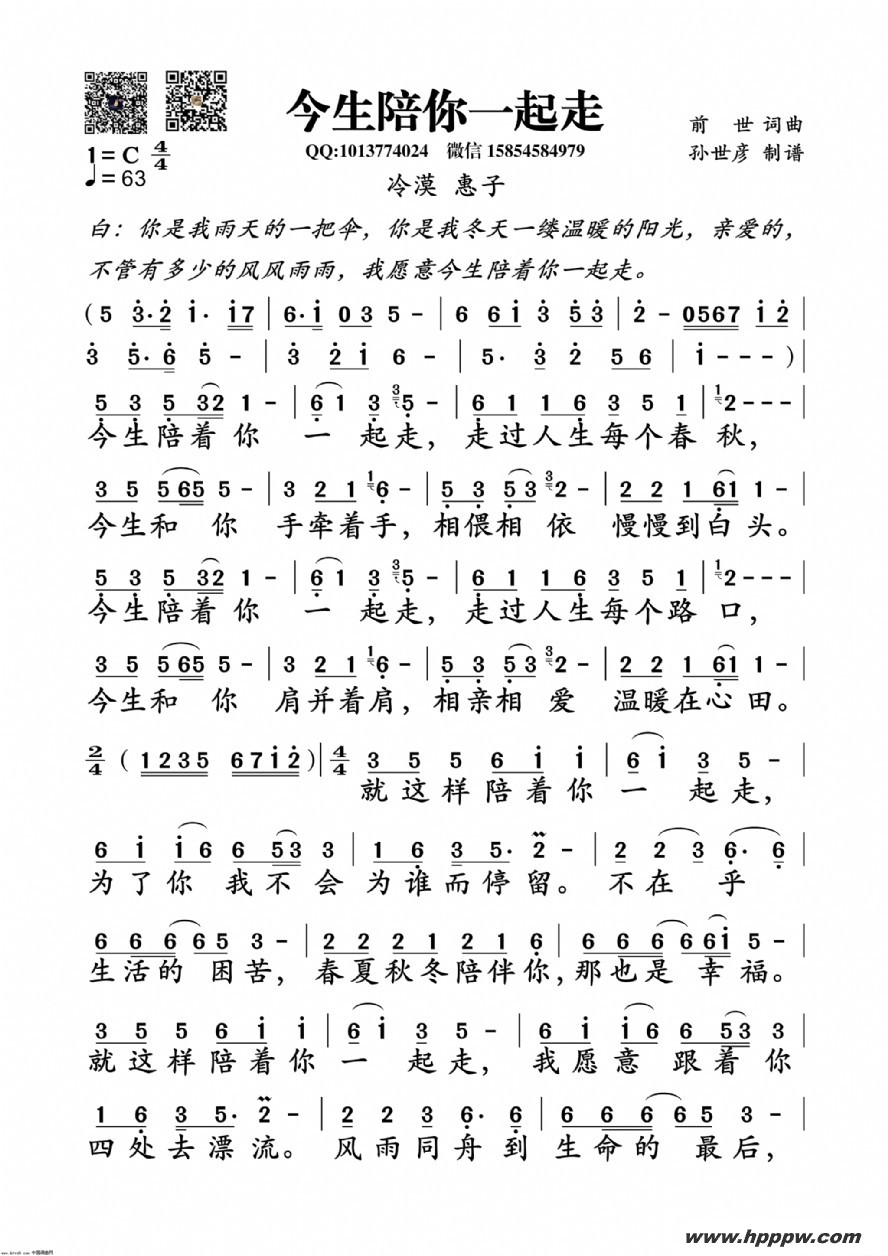 今生陪你一起走
前 世 词曲
1=C 4/4
QQ:1013774024 微信 15854584979
孙世彦 制谱
♩=63
冷漠 惠子
白：你是我雨天的一把伞，你是我冬天一缕温暖的阳光，亲爱的，
不管有多少的风风雨雨，我愿意今生陪着你一起走。
(5 3·2 1· 17 | 6·1 03 5 - | 6 61 3 53 | 2 - 0567 12 |
3 5·6 5 - | 3 21 6 - | 5· 3 2 56 | 1 - - - )|
53 532 1 - | 61 335 - | 61 16 35 1 | 12 - - - |
今生陪着你 一 起走，走过人生每个春 秋，
35 565 5 - | 3 21 16 - | 53 53 32 - | 22 161 1 - |
今生和 你 手牵着手，相偎相 依 慢慢到白头。
53 532 1 - | 61 335 - | 61 16 35 1 | 12 - - - |
今生陪着你 一 起走，走过人生每个路 口，
35 565 5 - | 3 21 16 - | 53 53 32 - | 22 161 1 - |
今生和 你 肩并着肩，相亲相 爱 温暖在心田。
2/4 (1235 6712)| 4/4 35 5 61 1 | 61 3 5 - |
就这样陪着你 一 起走，
61 16 653 3 | 16 35· 2 - | 22 3 6· 6 |
为了你 我不会为谁而停留。不在 乎
66 665 3 - | 22 21 21 6 | 66 6661 5 - |
生活的 困苦，春夏秋冬陪伴你,那也是 幸福。
35 5 61 1 | 61 3 5 - | 61 16 653 3
就这样陪着你 一 起走，我愿意 跟着你
16 35· 2 - | 22 3 6· 6 | 66 665 3 - |
四处去漂流。风雨同舟到 生命的 最后，
www.hpppw.com